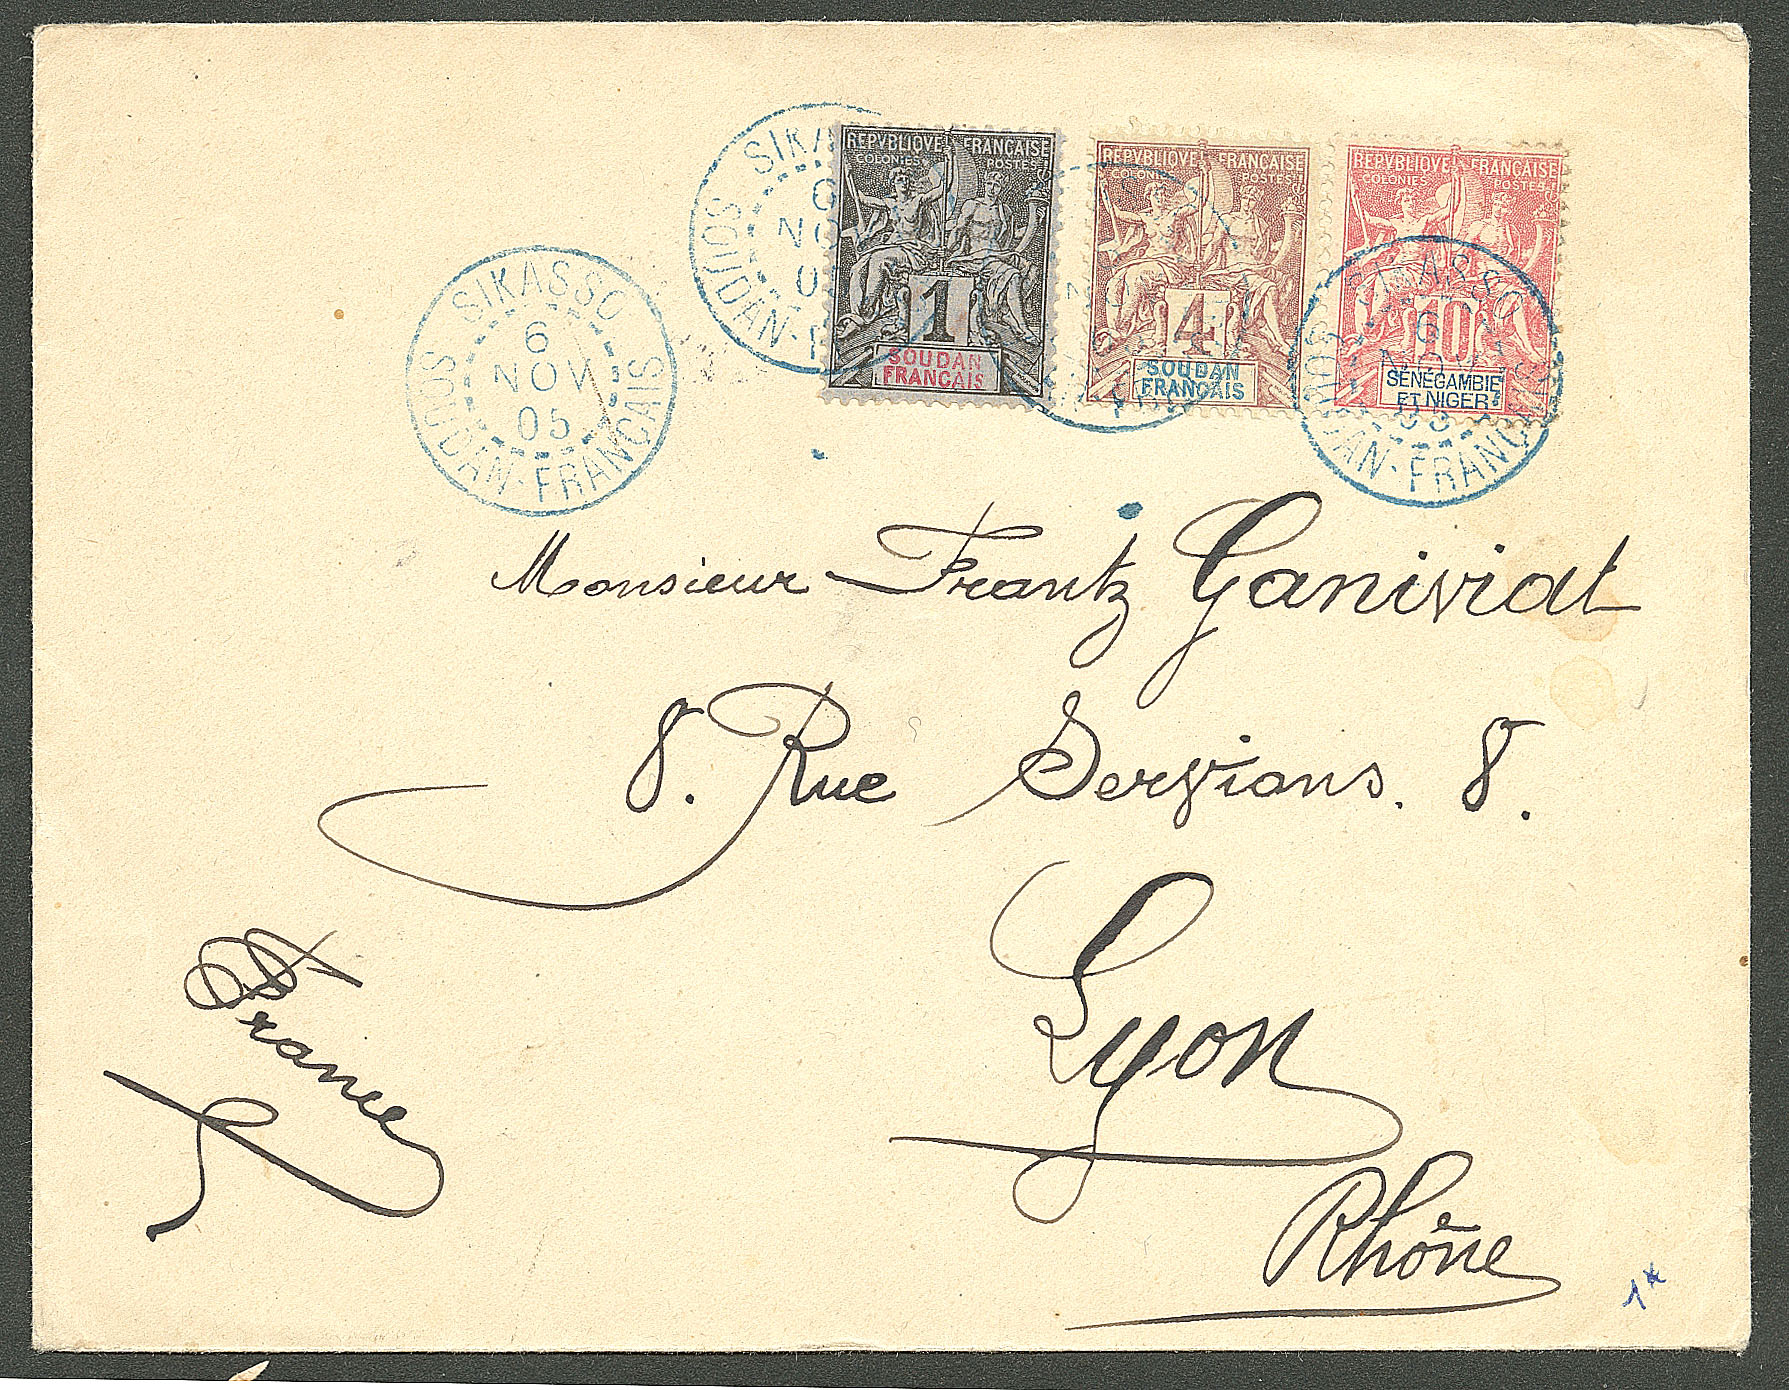 SIKASSO
6
NOV
05
SOUDAN-FRANCAIS
SIKA
6
NOV
0
SOUDAN-F
REPVBLIQVE FRANÇAISE
COLONIES POSTES
1
SOUDAN
FRANÇAIS
REPVBLIQVE FRANÇAISE
COLONIES POSTES
4
SOUDAN
FRANÇAIS
REPVBLIQVE FRANÇAISE
COLONIES POSTES
10
SÉNÉGAMBIE
ET NIGER
SIKASSO
6
NOV
05
SOUDAN-FRANCAIS
Monsieur Frantz Ganiviat
8. Rue Servians. 8.
Lyon
Rhône
France
1*